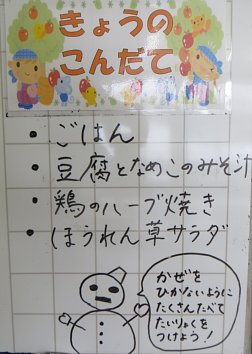 きょうの
こんだて
・ごはん
・豆腐となめこのみそ汁
・鶏のハーブ焼き
・ほうれん草サラダ
かぜを
ひかないように
たくさんたべて
たいりょくを
つけよう!